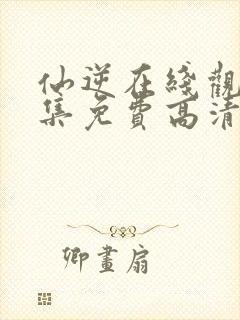 仙逆在綫觀
集免費高清
卿畫扇